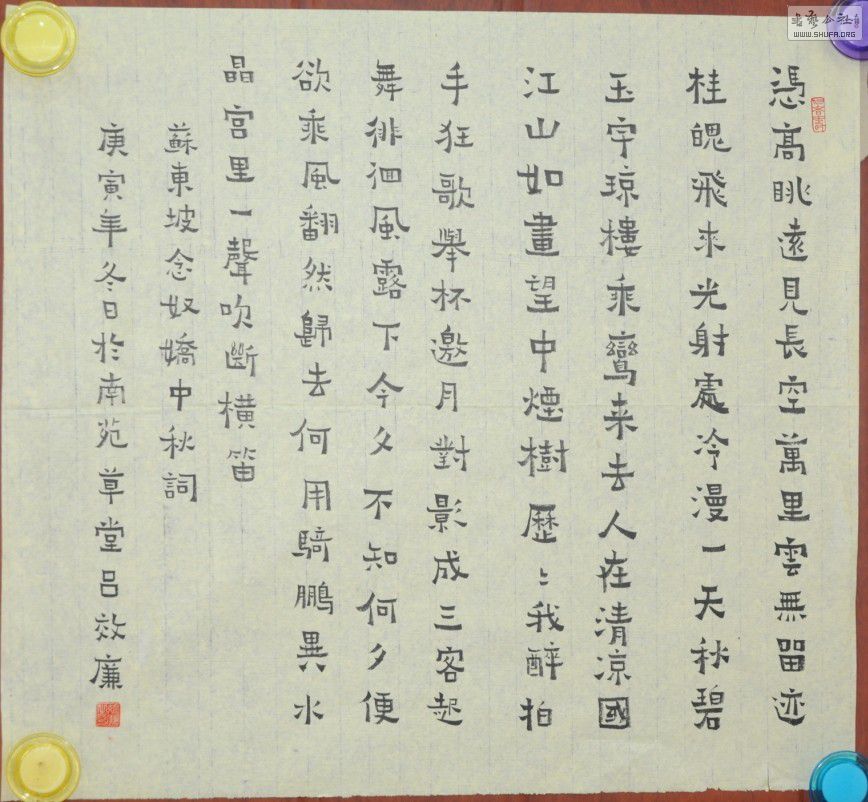 憑高眺遠見長空萬里雲無留迹
桂魄飛來光射處冷漫一天秋碧
玉宇琼樓乘鸞来去人在清凉國
江山如畫望中煙樹歷〻我醉拍
手狂歌舉杯邀月對影成三客起
舞徘徊風露下今夕不知何夕便
欲乘風翻然歸去何用騎鵬異水
晶宮里一聲吹斷橫笛
蘇東坡念奴嬌中秋詞
庚寅年冬日於南苑草堂吕效廉
書藝公社
WWW.SHUFA.ORG